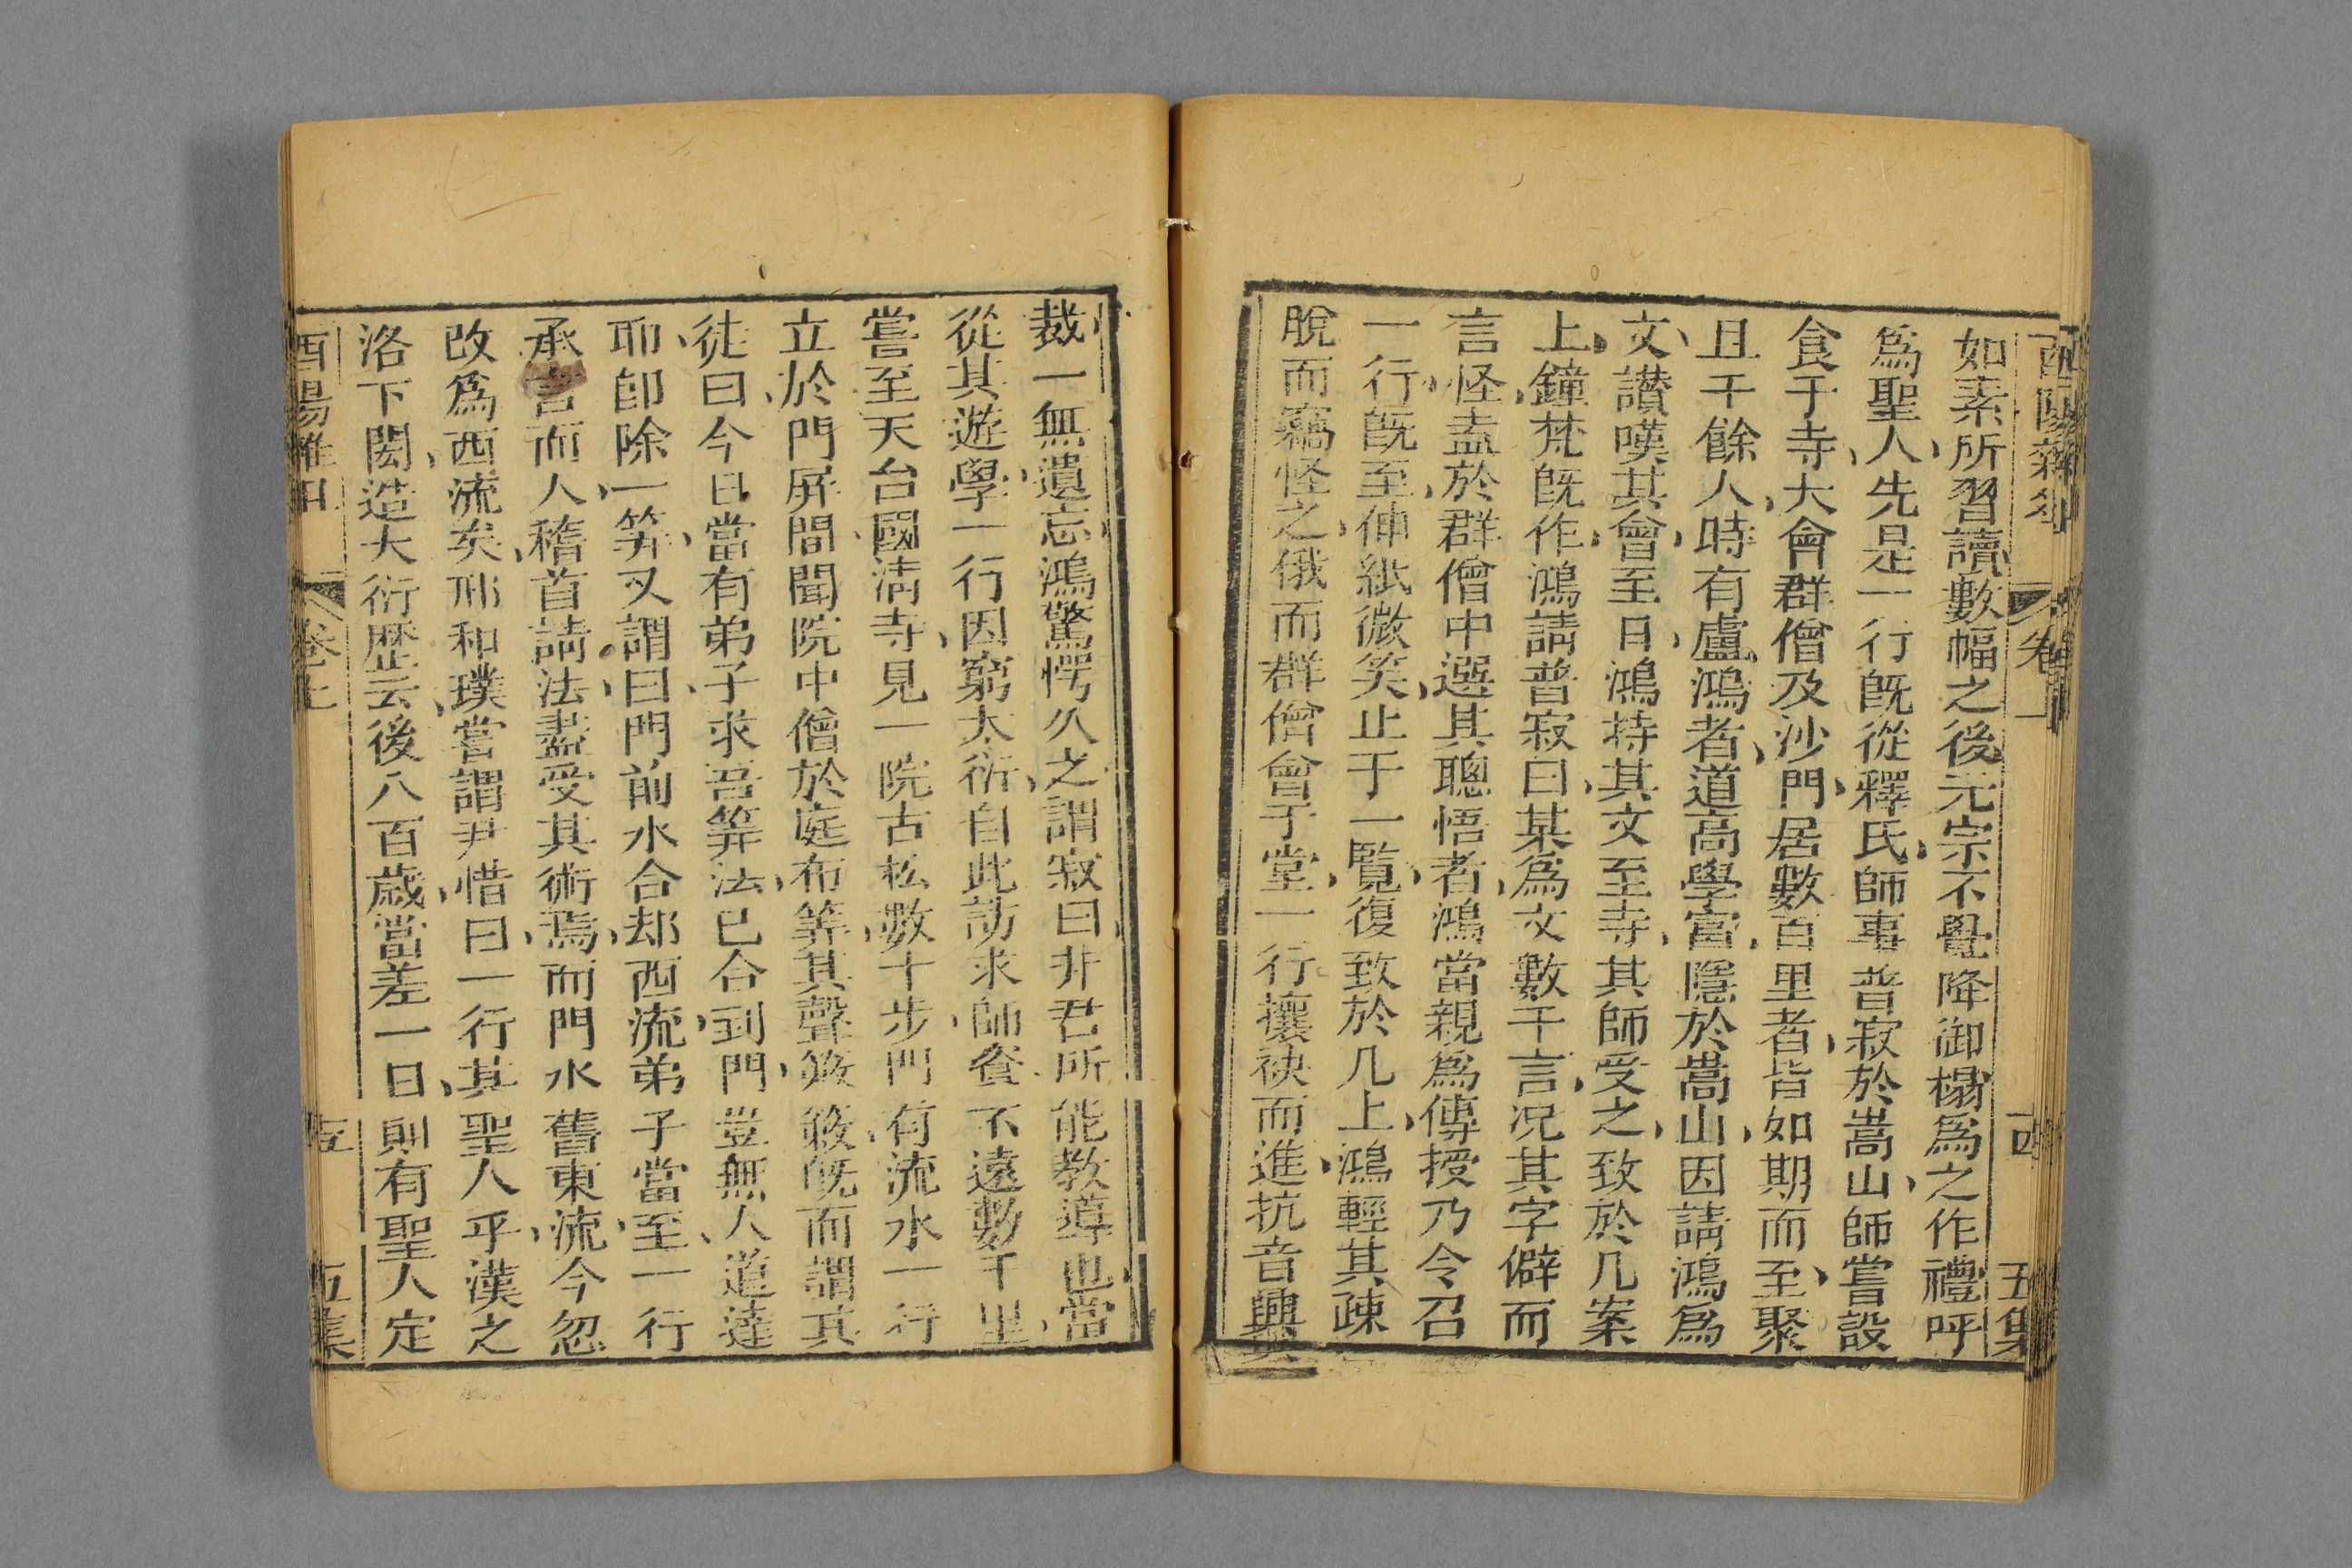 酉陽雜俎 卷一 四 五集
如素所習讀數幅之後元宗不覺降御榻爲之作禮呼
爲聖人先是一行旣從釋氏師事普寂於嵩山師嘗設
食于寺大會群僧及沙門居數百里者皆如期而至聚
且千餘人時有盧鴻者道高學富隱於嵩山因請鴻爲
文讚嘆其會至日鴻持其文至寺其師受之致於几案
上鐘梵旣作鴻請普寂曰某爲文數千言況其字僻而
言怪盍於群僧中選其聰悟者鴻當親爲傳授乃令召
一行旣至伸紙微笑止于一覽復致於几上鴻輕其疎
脫而竊怪之俄而群僧會于堂一行攘袂而進抗音興
裁一無遺忘鴻驚愕久之謂寂曰非君所能教導也當
從其遊學一行因窮大衍自此訪求師資不遠數千里
嘗至天台國淸寺見一院古松數十步門有流水一行
立於門屏間聞院中僧於庭布筭其聲簌簌旣而謂其
徒曰今日當有弟子求吾筭法已合到門豈無人道達
耶卽除一筭又謂曰門前水合却西流弟子當至一行
承言而入稽首請法盡受其術焉而門水舊東流今忽
改爲西流矣邢和璞嘗謂尹惜曰一行其聖人乎漢之
洛下閎造大衍歷云後八百歲當差一日則有聖人定
酉陽雜俎 卷上 五集